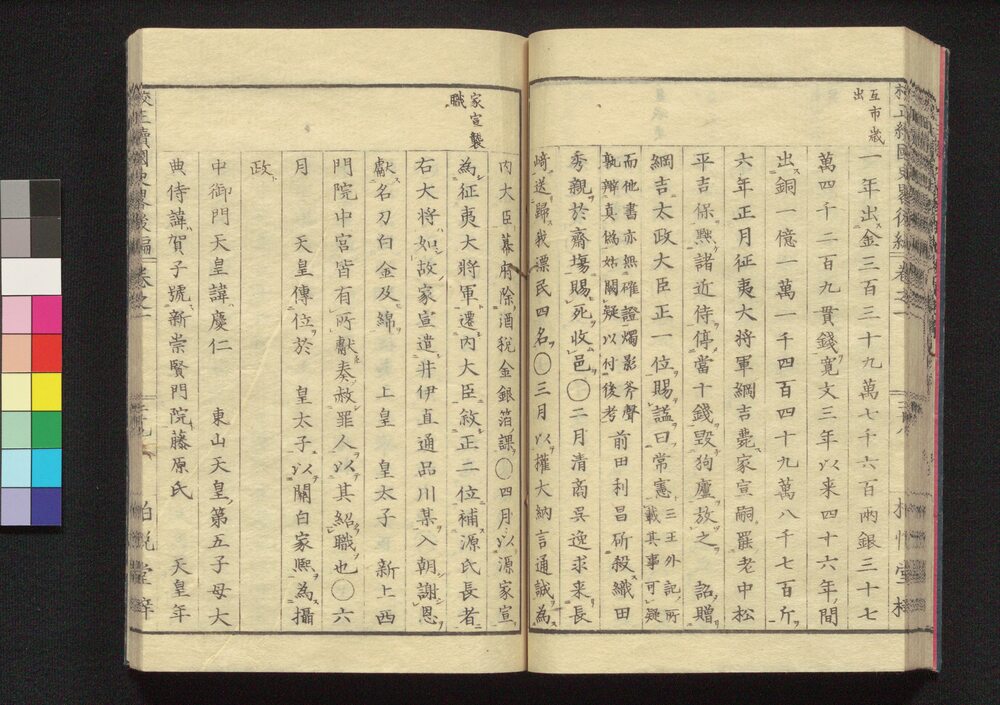 互市歳
出
一年出金三百三十九萬七千六百兩銀三十七
萬四千二百九貫錢寛文三年以来四十六年間
出銅一億一萬一千四百四十九萬八千七百斤
六年正月征夷大将軍綱吉薨家宣嗣罷老中松
平吉保黙諸近侍停當十錢毀狗廬放之 詔贈
綱吉太政大臣正一位賜諡曰常憲 三王外記所
載其事可疑
而他書亦無確證燭影斧聲
孰辨真偽姑闕疑以付後考
前田利昌斫殺織田
秀親於齋場賜死收邑〇二月清商呉逆求来長
崎送歸我漂民四名〇三月以權大納言通誠為
内大臣幕府除酒税金銀箔課〇四月以源家宣
家宣襲
職
為征夷大将軍遷内大臣敘正二位補源氏長者
右大将如故家宣遣井伊直通品川某入朝謝恩
獻名刀白金及綿 上皇 皇太子 新上西
門院中宮皆有所獻奏赦罪人以其紹職也〇六
月 天皇傳位於 皇太子以關白家熙為攝
政
中御門天皇諱慶仁 東山天皇第五子母大
典侍諱賀子號新崇賢門院藤原氏 天皇年
校正續國史畧後編 卷之一
二十九